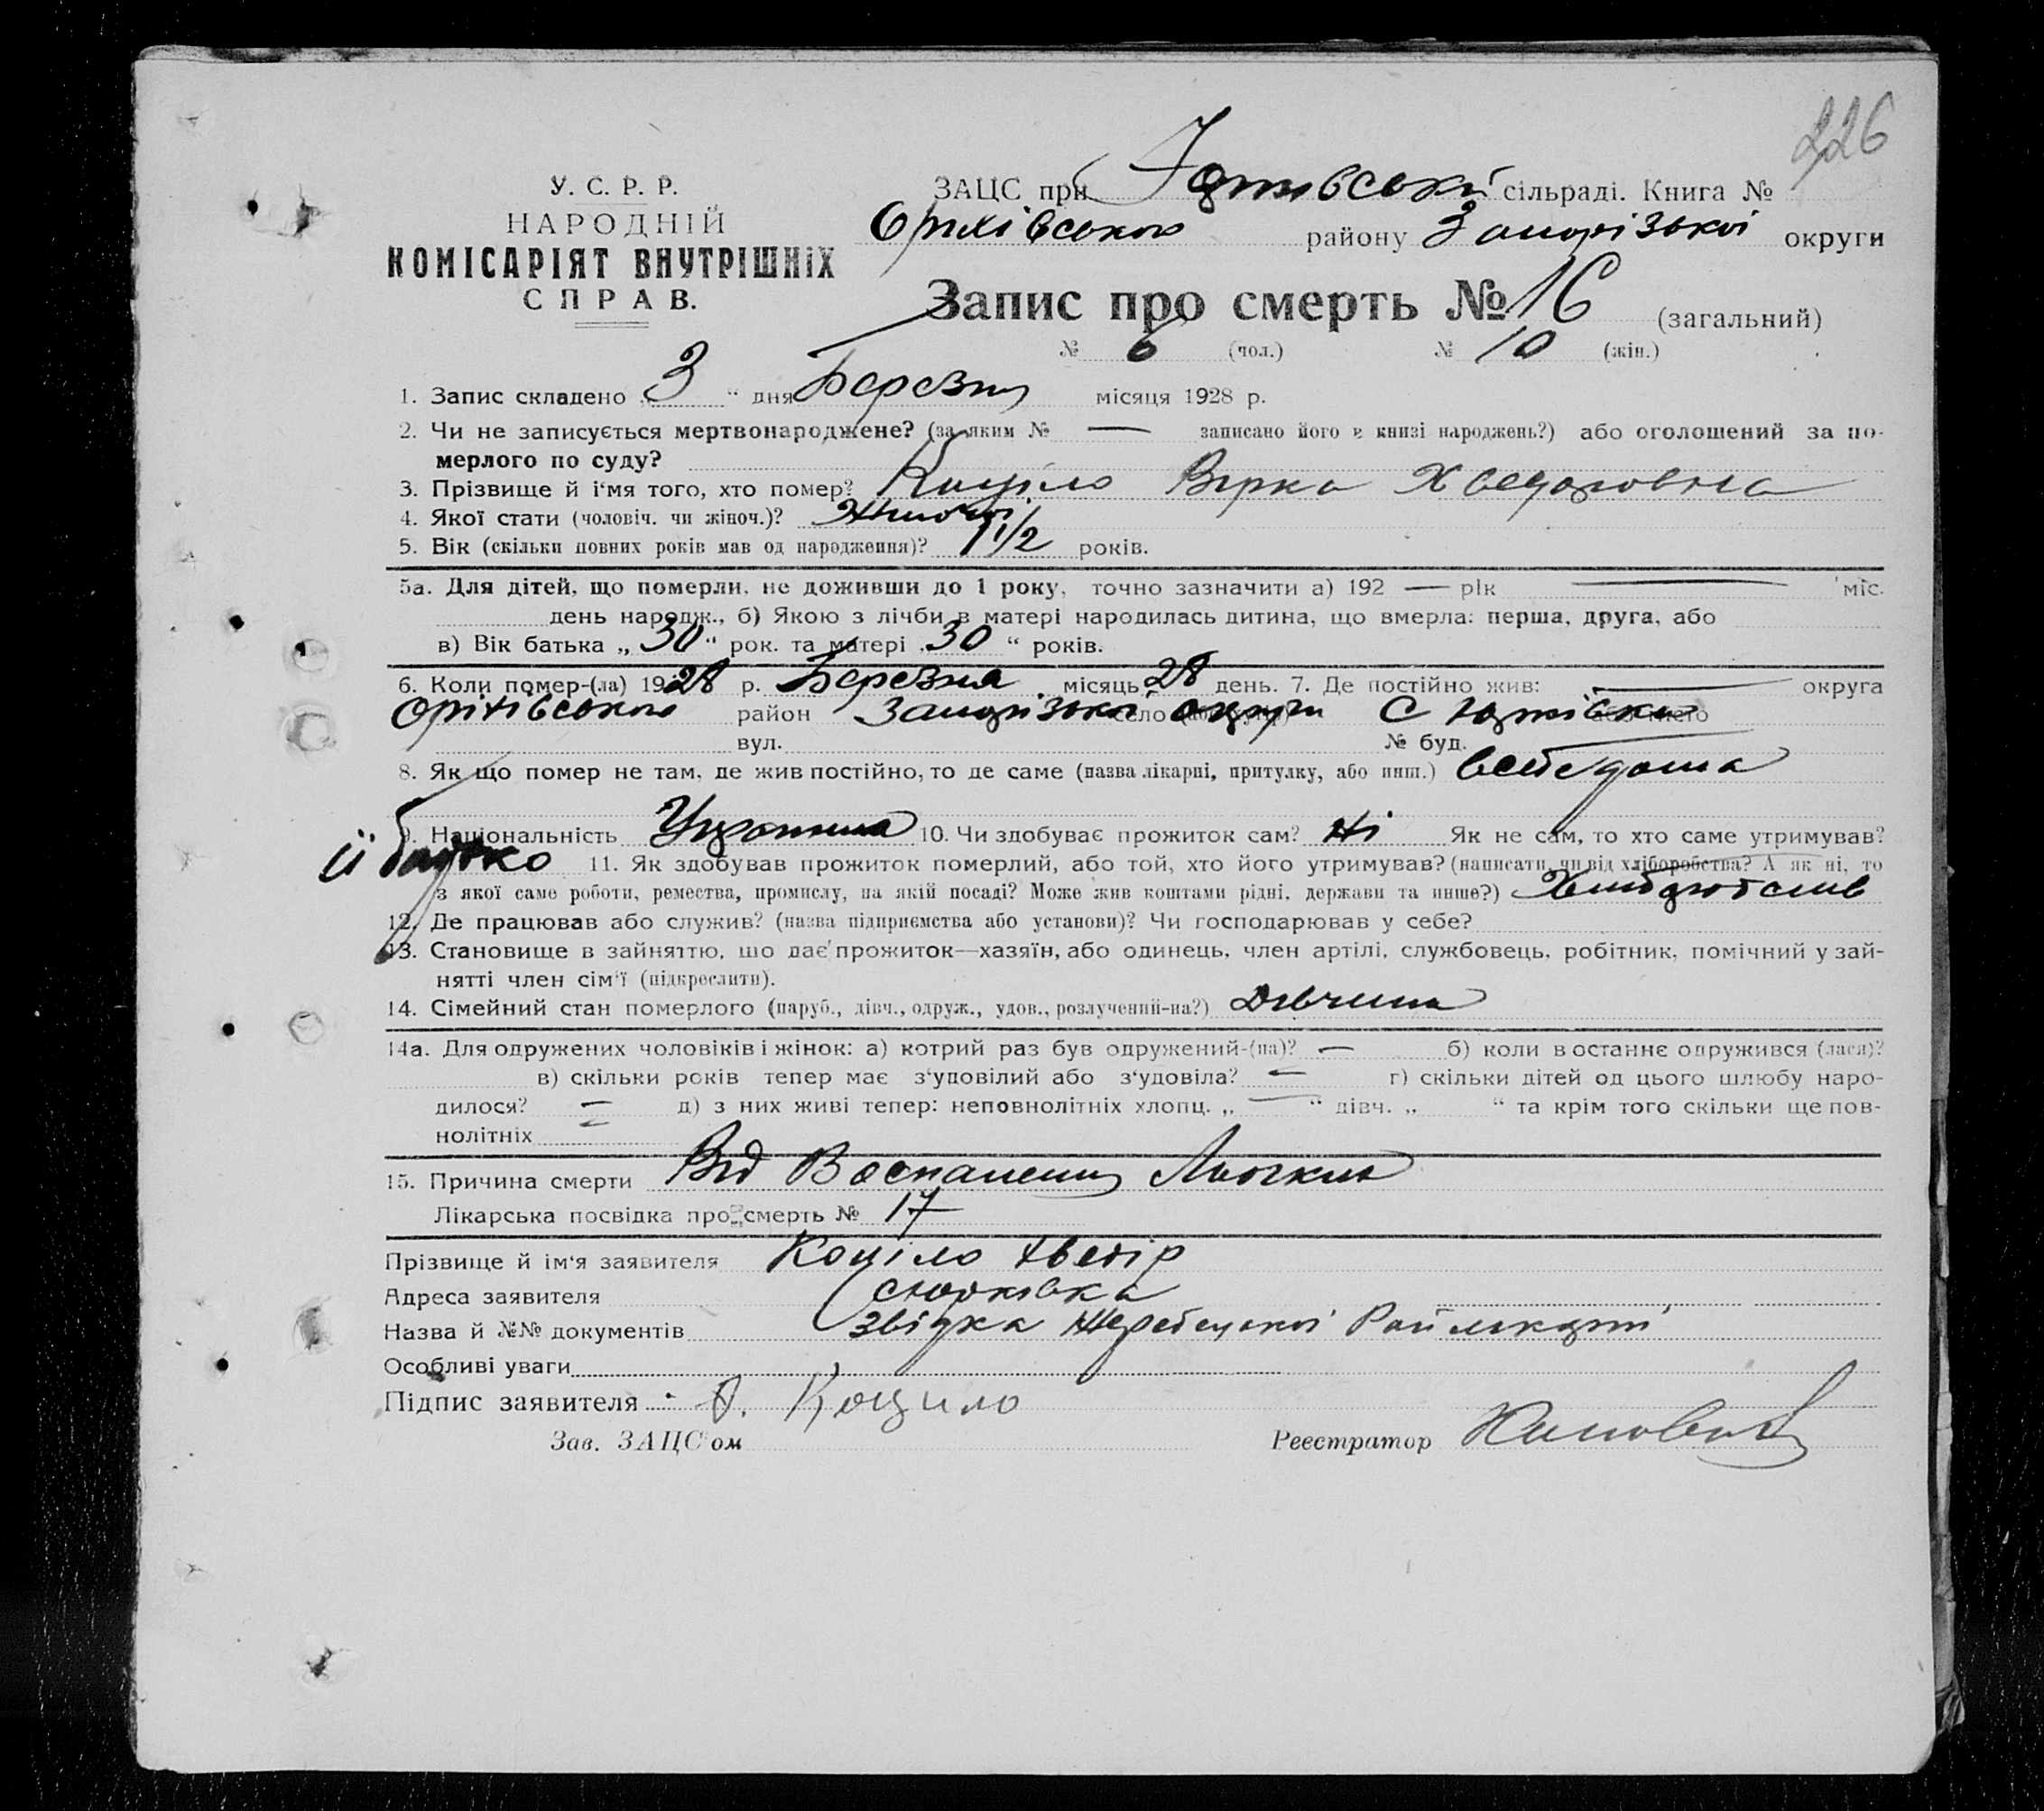 226
У. С. Р. Р.
НАРОДНІЙ
КОМІСАРІЯТ ВНУТРІШНІХ
СПРАВ.
ЗАЦС при Юрківській сільраді. Книга №
Оріхівського району Запорізької округи
Запис про смерть № 16 (загальний)
№ 6 (чол.) № 10 (жін.)
1. Запис складено „ 3 “ дня Березня місяця 1928 р.
2. Чи не записується мертвонароджене? (за яким № — записано його в книзі народжень?) або оголошений за по-
мерлого по суду?
3. Прізвище й і'мя того, хто помер? Коціло Вірка Хведоровна
4. Якої стати (чоловіч. чи жіноч.)? Жіночої
5. Вік (скільки повних років мав од народження)? 1 1/2 років.
5а. Для дітей, що померли, не доживши до 1 року, точно зазначити а) 192 — рік — міс.
день народж., б) Якою з лічби в матері народилась дитина, що вмерла: перша, друга, або
в) Вік батька „ 30 “ рок. та матері „ 30 “ років.
6. Коли помер-(ла) 1928 р. Березня місяць 28 день. 7. Де постійно жив: — округа
Оріхівського район Запорізької село округи С Юрківка
вул. № буд. —
8. Як що помер не там, де жив постійно, то де саме (назва лікарні, притулку, або инш.) всебе дома
9. Національність Українка 10. Чи здобуває прожиток сам? Ні Як не сам, то хто саме утримував?
її батько 11. Як здобував прожиток померлий, або той, хто його утримував? (написати, чи від хліборобства? А як ні, то
з якої саме роботи, ремества, промислу, на якій посаді? Може жив коштами рідні, держави та инше?)
12. Де працював або служив? (назва підприємства або установи)? Чи господарював у себе?
13. Становище в зайняттю, що дає прожиток—хазяїн, або одинець, член артілі, службовець, робітник, помічний у зай-
нятті член сім'ї (підкреслити).
14. Сімейний стан померлого (паруб., дівч., одруж., удов., розлучений-на?) Дівчина
14а. Для одружених чоловіків і жінок: а) котрий раз був одружений-(на)? — б) коли востаннє одружився (лася)?
в) скільки років тепер має з'уповілий або з'удовіла? — г) скільки дітей од цього шлюбу наро-
дилося? — д) з них живі тепер: неповнолітніх хлопц. „ — “ дівч. „ “ та крім того скільки ще пов-
нолітніх —
15. Причина смерти Від Воспаления Льогких
Лікарська посвідка про смерть № 17
Прізвище й ім'я заявителя Коціло Хведір
Адреса заявителя с Юрківка
Назва й №№ документів звідка Жеребецької
Особливі уваги
Підпис заявителя Коцило
Зав. ЗАЦС'ом Реєстратор